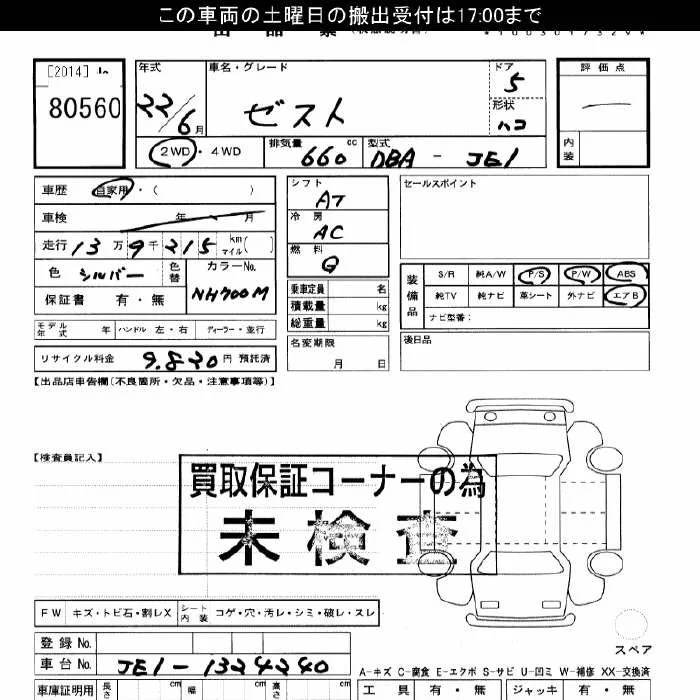 この車両の土曜日の搬出受付は17:00まで
[2014]
80560
年式 車名・グレード ドア 評価点
22/6月 ゼスト 5
形状 ハコ
2WD・4WD 排気量 660 cc 型式 DBA - JE1 内装
車歴 自家用・( )
車検 年 月
走行 13万9千215 km マイル( )
色 シルバー 色替 カラーNo. NH700M
保証書 有・無
モデル年式 年 ハンドル 左・右 ディーラー・並行
リサイクル料金 9.820 円 預託済
シフト AT
冷房 AC
燃料 G
乗車定員 名
積載量 kg
総重量 kg
名変期限
月 日
セールスポイント
装備品 S/R 純A/W P/S P/W ABS
純TV 純ナビ 革シート 外ナビ エアB
ナビ型番:
後日品
【出品店申告欄(不良箇所・欠品・注意事項等)】
【検査員記入】
買取保証コーナーの為
未検査
FW キズ・トビ石・割レX シート内装 コゲ・穴・汚レ・シミ・破レ・スレ
スペア
登録No.
車台No. JE1-1324240
A-キズ C-腐食 E-エクボ S-サビ U-凹ミ W-補修 XX-交換済
車庫証明用 長さ cm 幅 cm 高さ cm 工具 有・無 ジャッキ 有・無